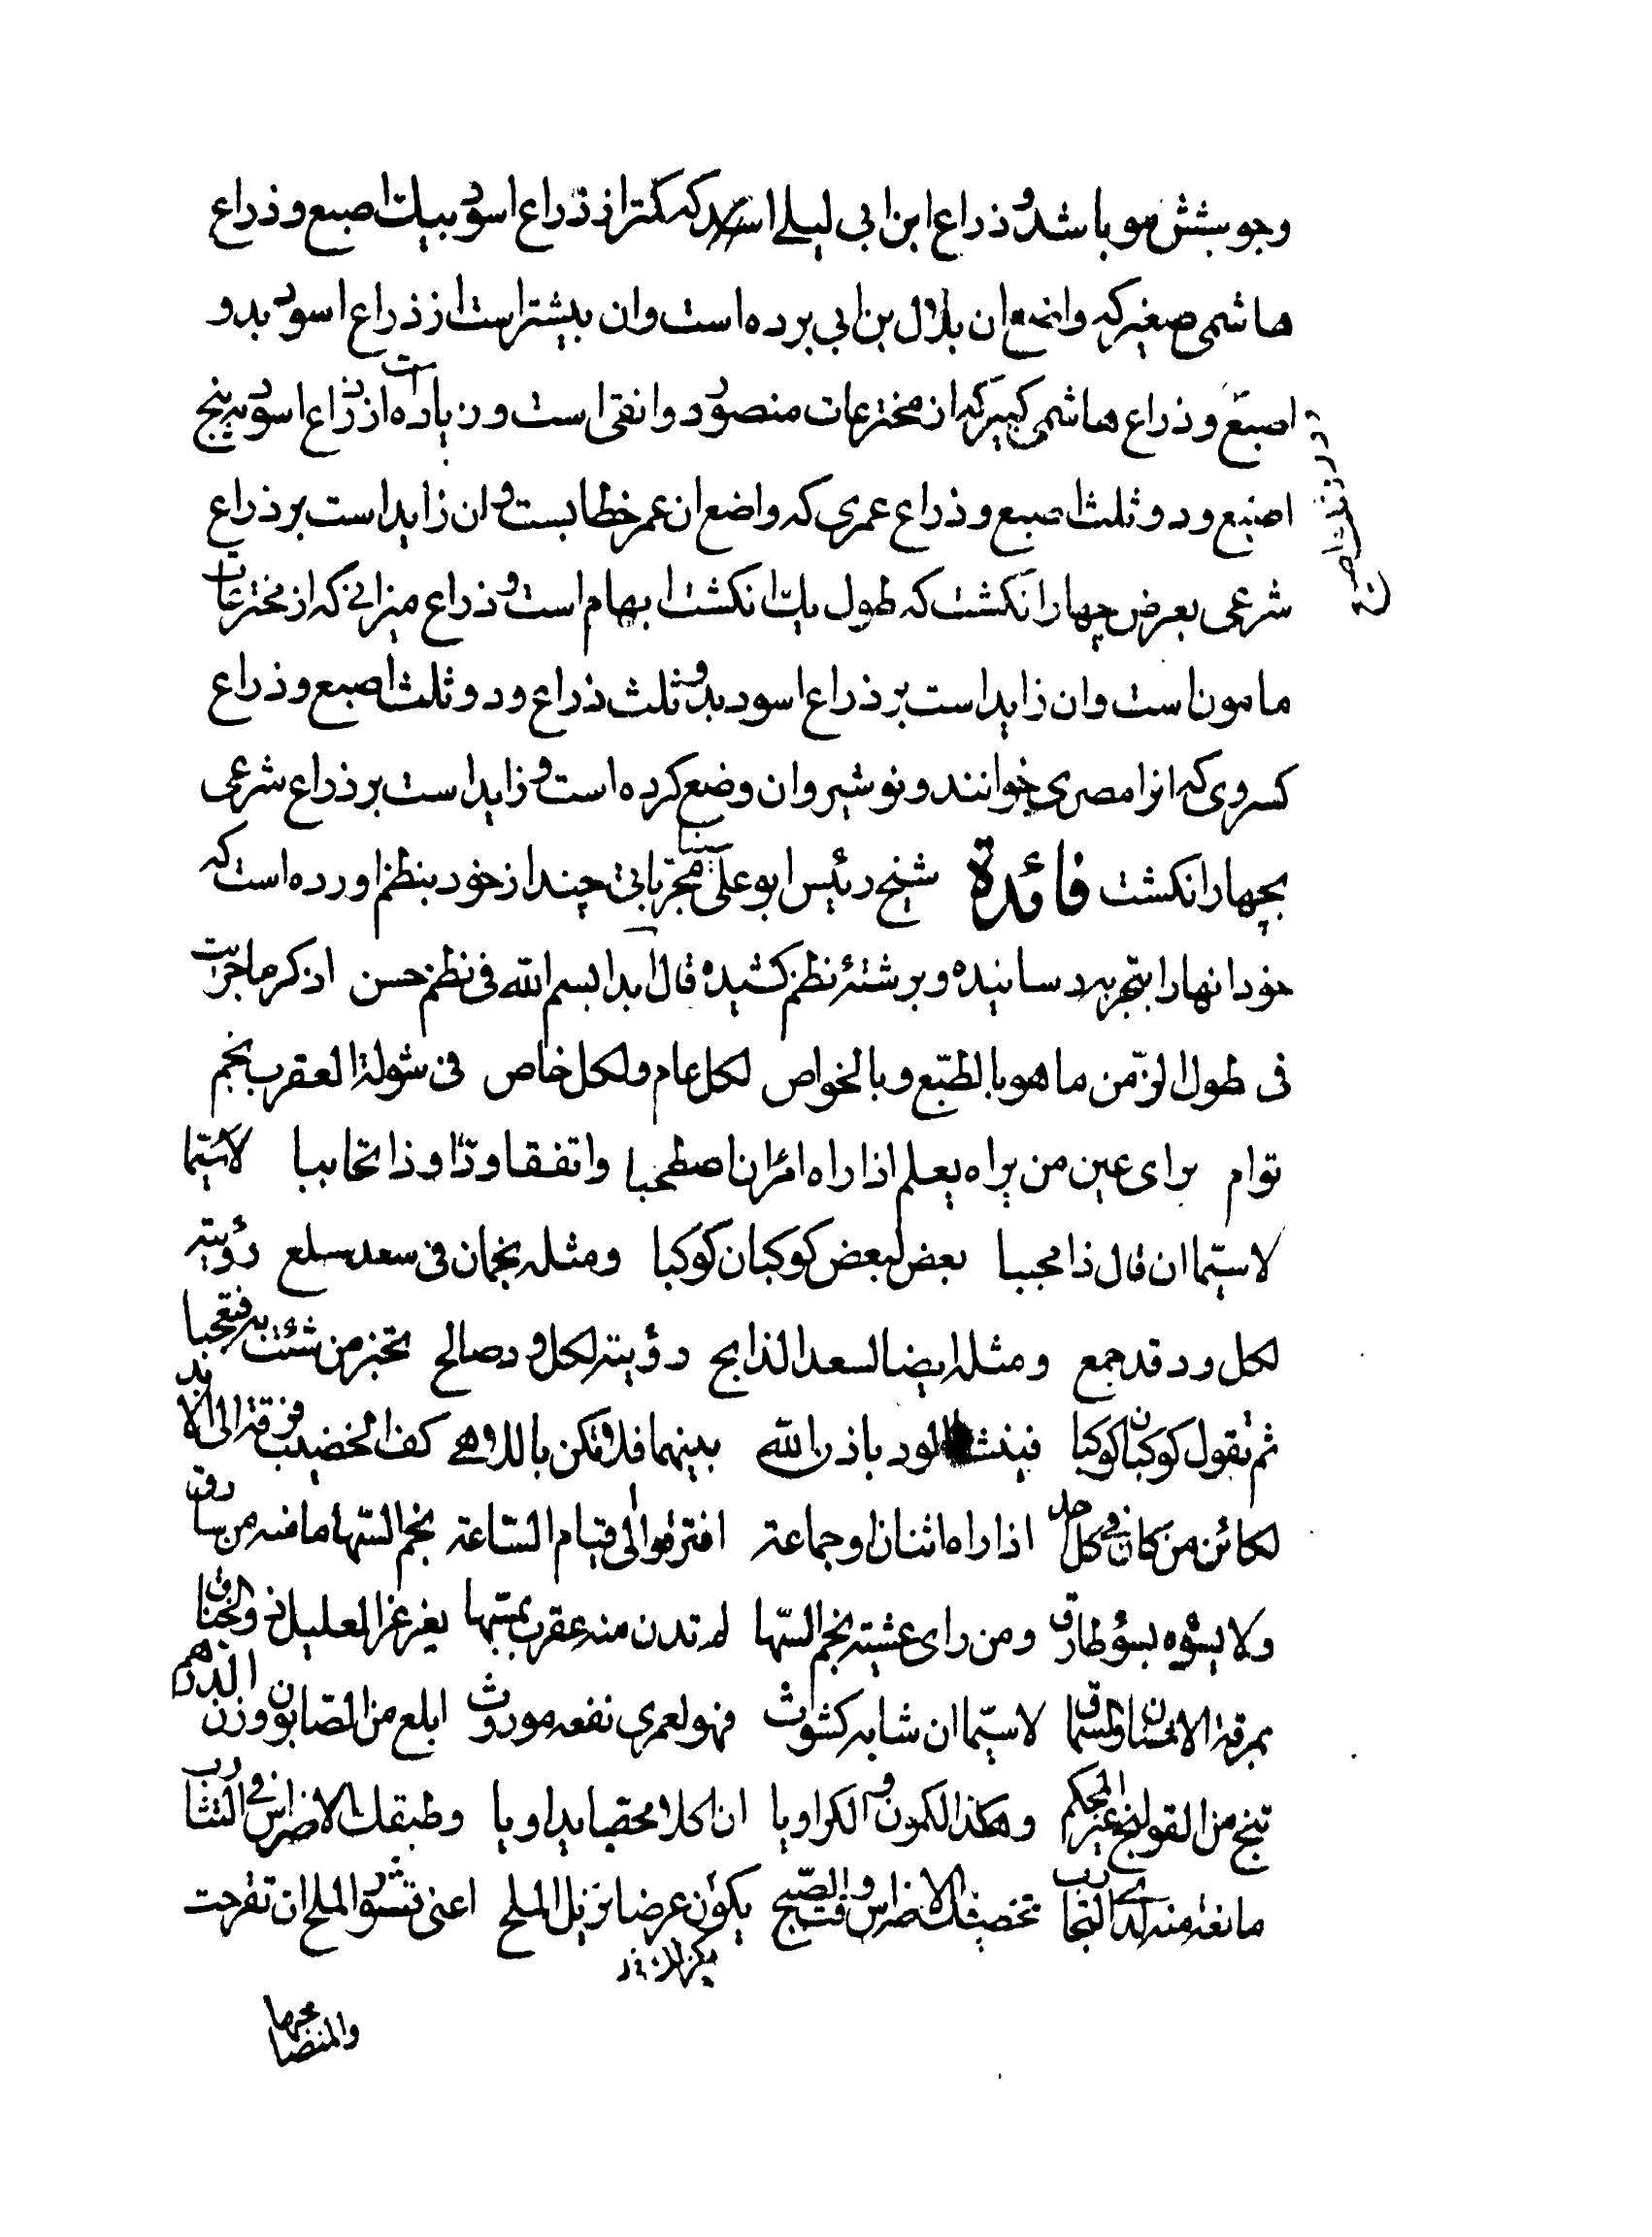 وجو بشش مو باشد و ذراع ابن ابی لیلے است که کمتر از ذراع اسود بیک اصبع و ذراع
هاشمی صغیر که واضع ان بلال بن ابی برده است وان بیشتر است از ذراع اسود بدو
اصبع و ذراع هاشمی کبیر که از مخترعات منصور دوانقی است و زیاده از ذراع اسود بپنج
اصبع و دو ثلث اصبع و ذراع عمری که واضع ان عمر خطابست و ان زاید است بر ذراع
شرعی بعرض چهار انکشت که طول یک انکشت ابهام است و ذراع میزانے که از مخترعات
مامون است وان زاید است بر ذراع اسود بدو ثلث ذراع و دو ثلث اصبع و ذراع
کسروی که انرا مصری خوانند و نوشیروان وضع کرده است و زاید است بر ذراع شرعی
بچهار انکشت فائدة شیخ رئیس ابو علی سینا مجرباتی چند از خود بنظم اورده است که
خود انها را بتجربه رسانیده و برشتهٔ نظم کشیده قال ابدا بسم الله فی نظم حسن اذکر ما جربت
فی طول الزمن ما هو بالطبع و بالخواص لکل عام ولکل خاص فی شولة العقرب نجم
توام براى عین من یراه یعلم اذا راه امرٔان اصطحبا واتفقا ودّا وذا تحاببا لاسیّما
لاسیّما ان قال ذا محببا بعض لبعض کوکبان کوکبا ومثله نجمان فی سعد سلع رؤیته
لکل ود قد جمع ومثله ایضا لسعد الذابح رؤیته لکل ود صالح تخبر من شئت به فتعجبا
ثم تقول کوکبان کوکبا فینشا الود باذن الله بینهما فلا تکن باللاهے کف الخضیب فرقة الی الابد
لکائن من کان فی کل حد اذا راه اثنان او جماعة افترقوا الی قیام الساعة نجم السّها مامنه من سارق
ولا یسؤه بسؤ طارق ومن رای عشیته نجم السّها لم تدن منه عقرب یمسّها یغرغر العلیل فی والخناق
بمرقة الانسان والسماق لاسیّما ان شابه کشوث فهو لعمری نفعه موروث ابلع من الصابون وزن الدرهم
تنج من القولنج غیر المحکم وهکذا الکمون و الکراویا ان اکلا محقبا بداویا وطبقك الاضراس فی التثارب
مانعة منه لدی التجارب تخصیتك الاضراس والصبح یکون عرضا نزیل الملح اعنی تشور الملح ان تقرحت
والمنضاجها